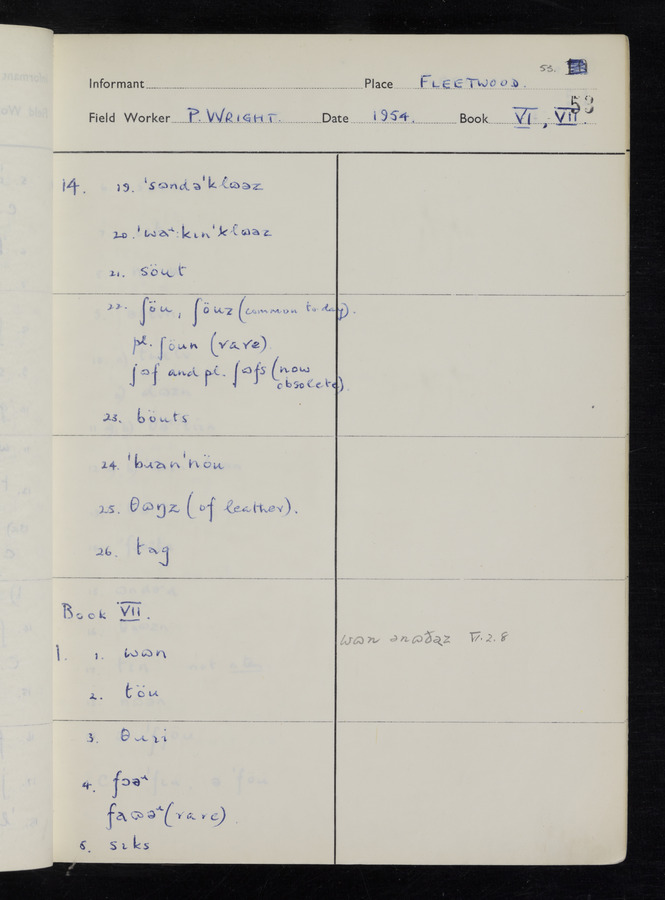 53.
Informant Place FLEETWOOD.
53
Field Worker P. WRIGHT. Date 1954. Book VI, VII.
14. 19. ˈsɒndəˈklɒəz
20. ˈwəʴ:kɪnˈklɒəz
21. söut
22. ʃöu, ʃöuz (common to-day).
pl. ʃöun (rare)
ʃɒf and pl. ʃɒfs (now
obsolete).
23. böuts
24. ˈbɹanˈnöu
25. θɒŋz (of leather).
26. tag
Book VII.
1. 1. wɒn wɒn ənɒðəz VI.2.8
2. töu
3. θɹɪi
4. fɔəʴ
faʊəʴ (rare).
6. sɪks